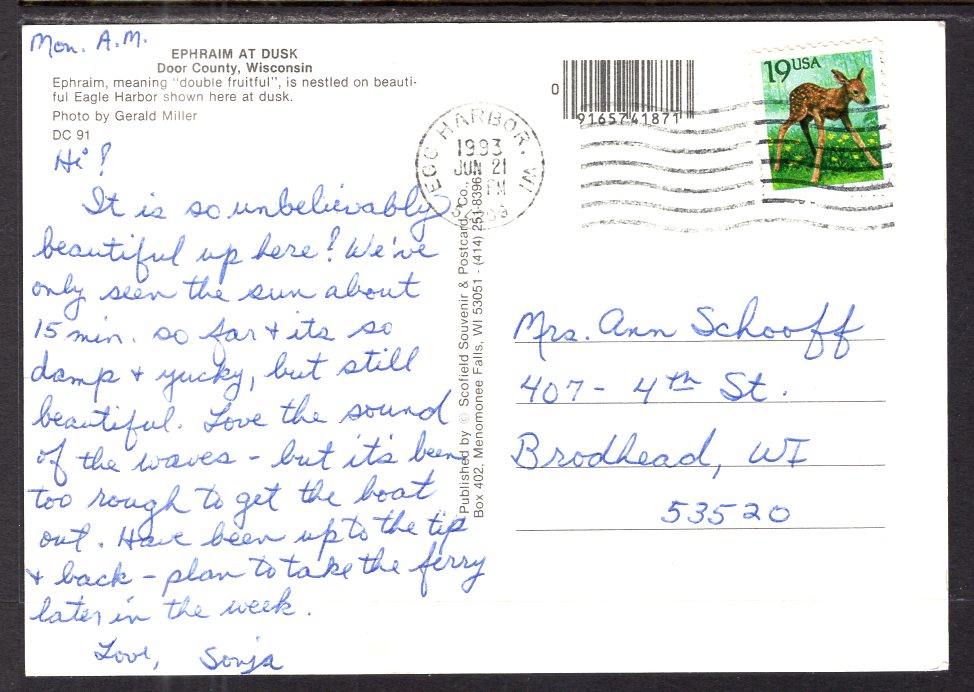 Mon. A.M.
EPHRAIM AT DUSK
Door County, Wisconsin
Ephraim, meaning "double fruitful", is nestled on beauti-
ful Eagle Harbor shown here at dusk.
Photo by Gerald Miller
DC 91
Hi!
It is so unbelievably
beautiful up here! We've
only seen the sun about
15 min. so far + its so
damp + yucky, but still
beautiful. Love the sound
of the waves - but it's been
too rough to get the boat
out. Have been up to the tip
+ back - plan to take the ferry
later in the week.
Love, Sonja
Published by © Scofield Souvenir & Postcard Co.,
Box 402, Menomonee Falls, WI 53051 - (414) 253-8396
EGG HARBOR, WI
1993
JUN 21
PM
0
9165741871
19USA
Mrs. Ann Schooff
407 - 4th St.
Brodhead, WI
53520